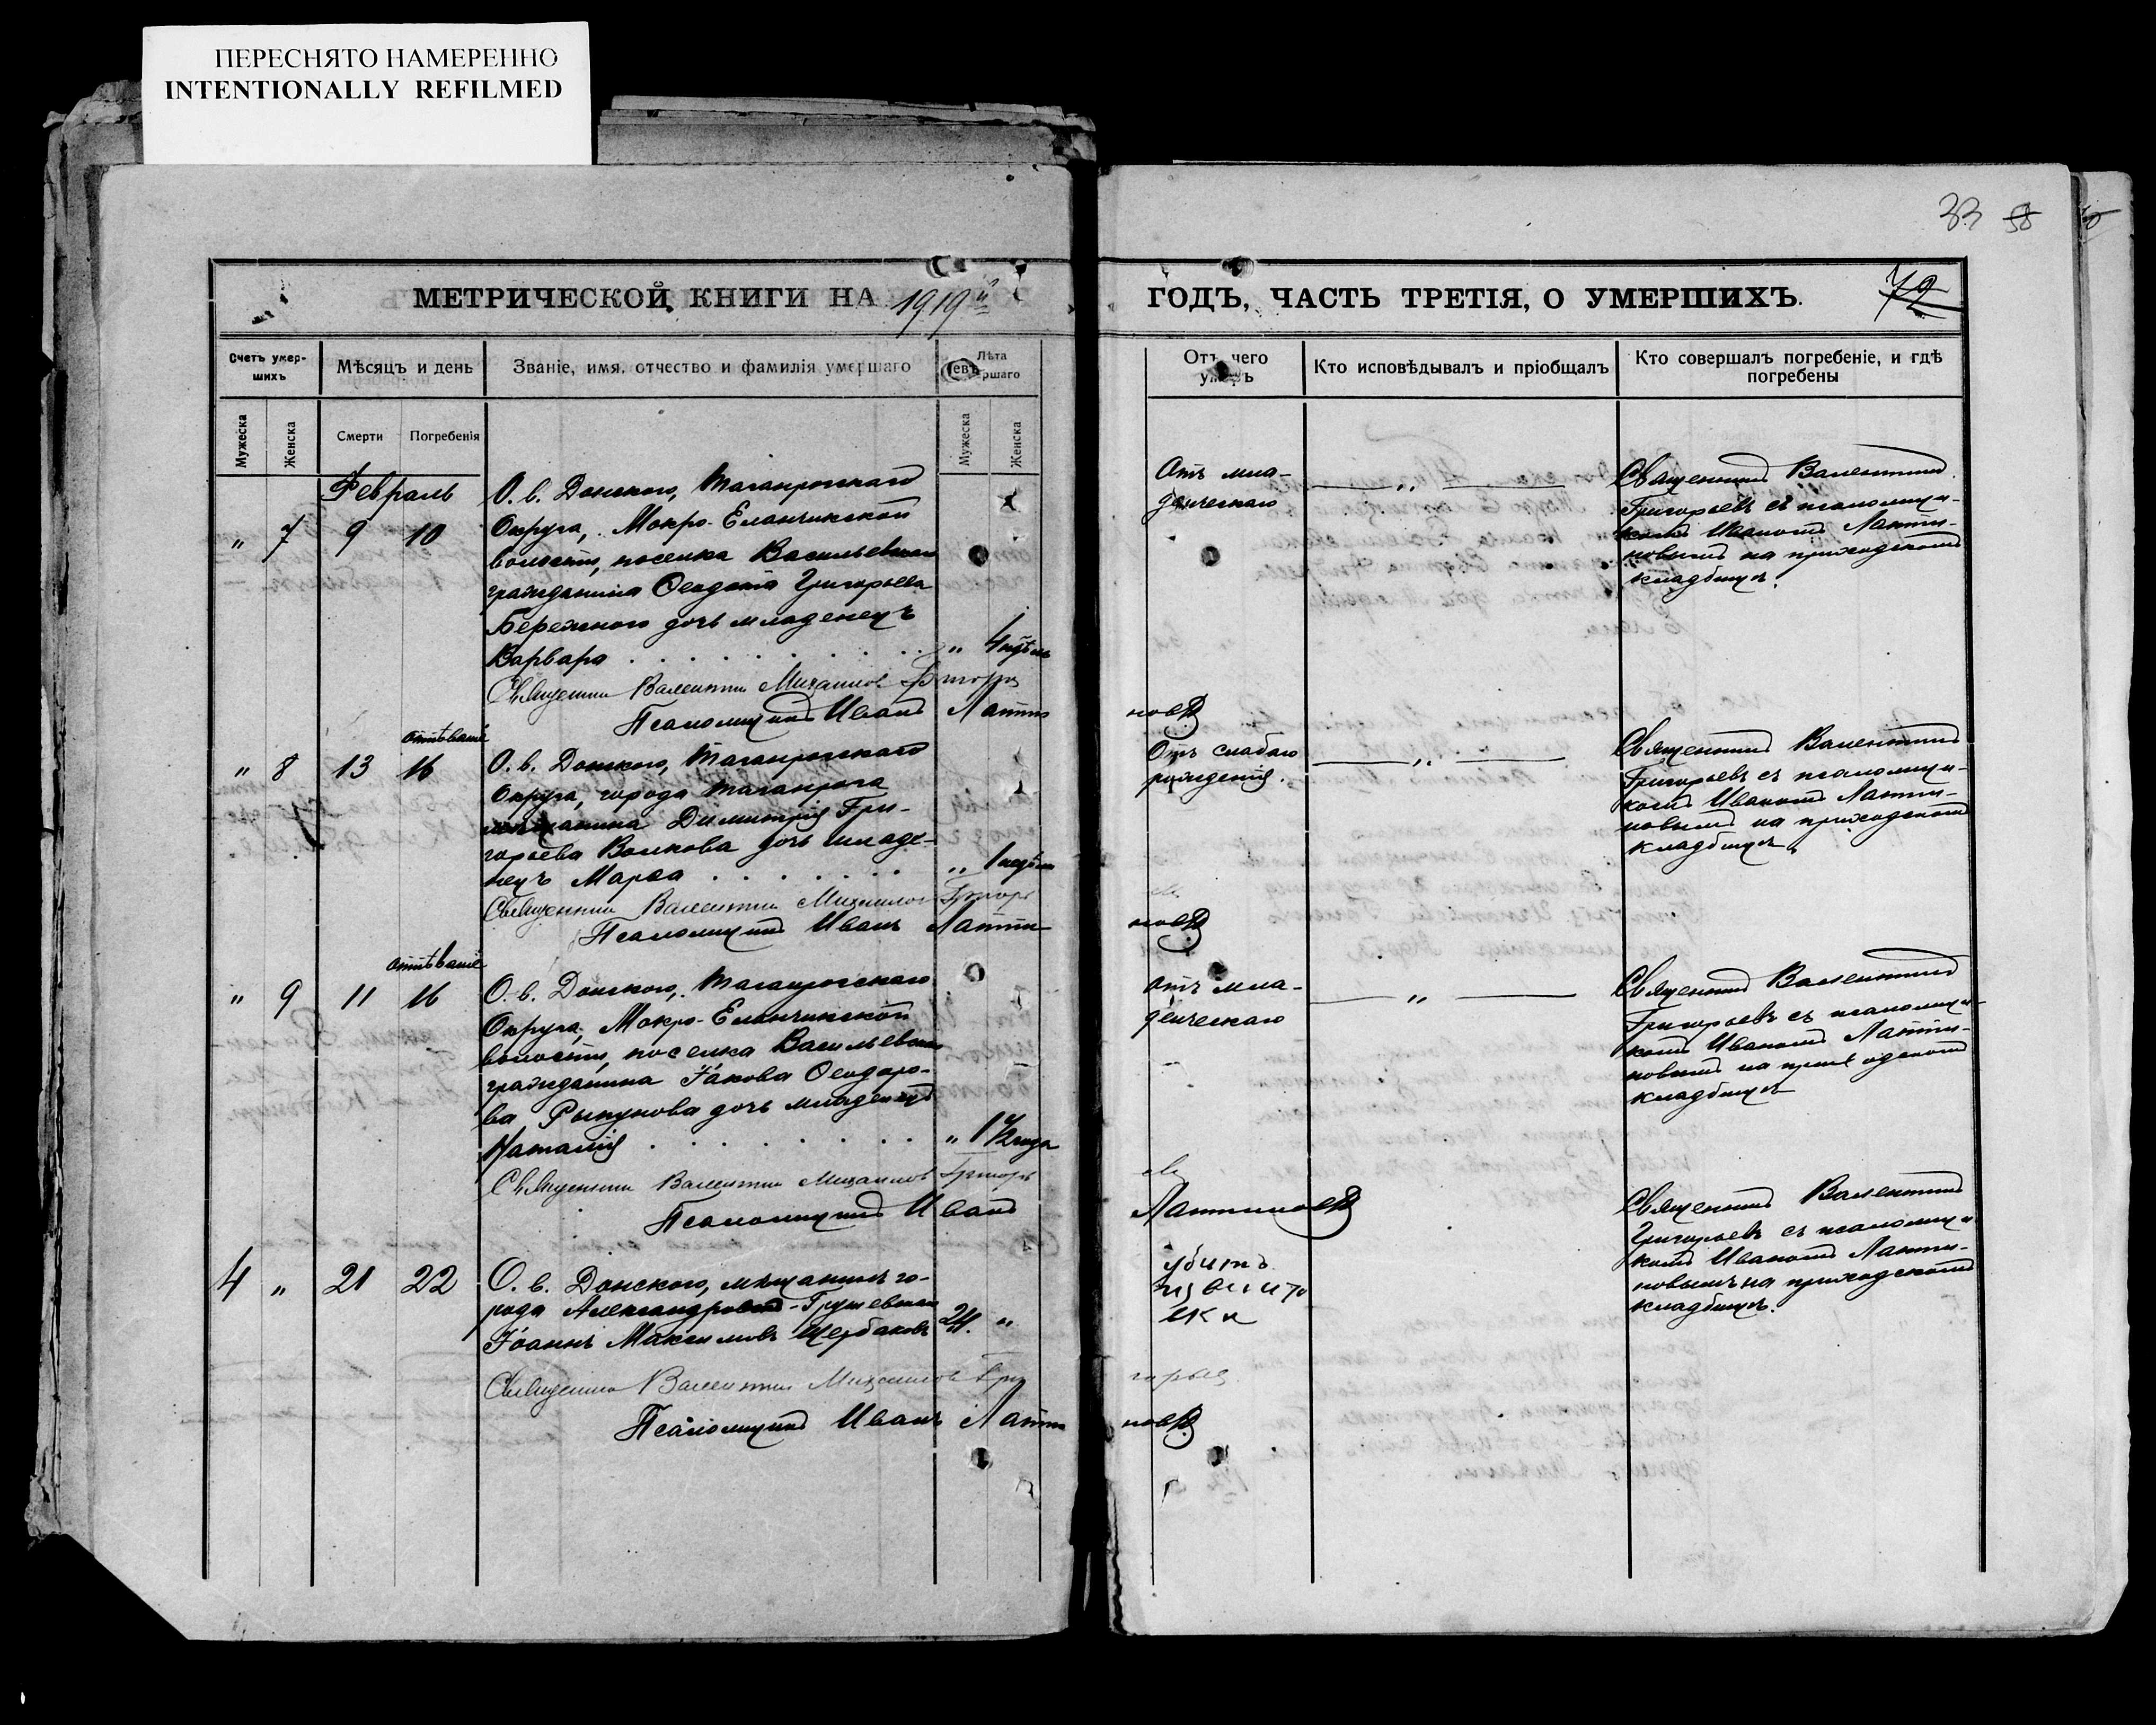 ПЕРЕСНЯТО НАМЕРЕННО
INTENTIONALLY REFILMED
33 58
МЕТРИЧЕСКОЙ КНИГИ НА 1919й
ГОДЪ, ЧАСТЬ ТРЕТІЯ, О УМЕРШИХЪ.
72
Счетъ умер-
шихъ
Мѣсяцъ и день
Званіе, имя, отчество и фамилія умершаго
Лѣта
Мужеска
Женска
Смерти
Погребенія
Мужеска
Женска
Отъ чего
Кто исповѣдывалъ и пріобщалъ
Кто совершалъ погребеніе, и гдѣ
погребены
Февраль
" 7 9 10
О. в. Донского, Таганрогскаго
Округа, Мокро-Еланчикской
волости, поселка Васильевскаго
гражданина Ѳеодота Григорьева
Бережного дочь младенецъ
Варвара . . . . . . . . . . . " 4 недѣли
Священник Валентин Михаилов
Псаломщикъ Иванъ Лаптиновъ
Отъ мла-
денческаго
— " —
Священникъ Валентинъ
Григорьевъ съ псаломщи-
комъ Иваномъ Лапти-
новымъ на приходскомъ
кладбищѣ.
отпѣваніе
" 8 13 16
О. в. Донского, Таганрогскаго
Округа, города Таганрога
мѣщанина Димитрія Гри-
горьева Волкова дочь младе-
нецъ Марѳа . . . . . . . " 1 недѣли
Священник Валентин Михаилов Григорь
Псаломщикъ Иванъ Лаптиновъ
Отъ слабаго
рожденія.
— " —
Священникъ Валентинъ
Григорьевъ съ псаломщи-
комъ Иваномъ Лапти-
новымъ на приходскомъ
кладбищѣ.
отпѣваніе
" 9 11 16
О. в. Донского, Таганрогскаго
Округа, Мокро-Еланчикской
волости, поселка Васильевскаго
гражданина Іакова Ѳеодоро-
ва дочь младенецъ
Наталія . . . . . . . . " 1 1/2 года
Священник Валентин Михаилов Григорь
Псаломщикъ Иванъ Лаптиновъ
отъ мла-
денческаго
— " —
Священникъ Валентинъ
Григорьевъ съ псаломщи-
комъ Иваномъ Лапти-
новымъ на приходскомъ
кладбищѣ
4 " 21 22
О. в. Донского, мѣщанинъ го-
рода Александровск-Грушевскаго
Іоаннъ Максимовъ Щербаковъ 24. "
Священник Валентин Михаилов Григорьев
Псаломщикъ Иванъ Лаптиновъ
убитъ
из винто
вки
Священникъ Валентинъ
Григорьевъ съ псаломщи-
комъ Иваномъ Лапти-
новымъ на приходскомъ
кладбищѣ.